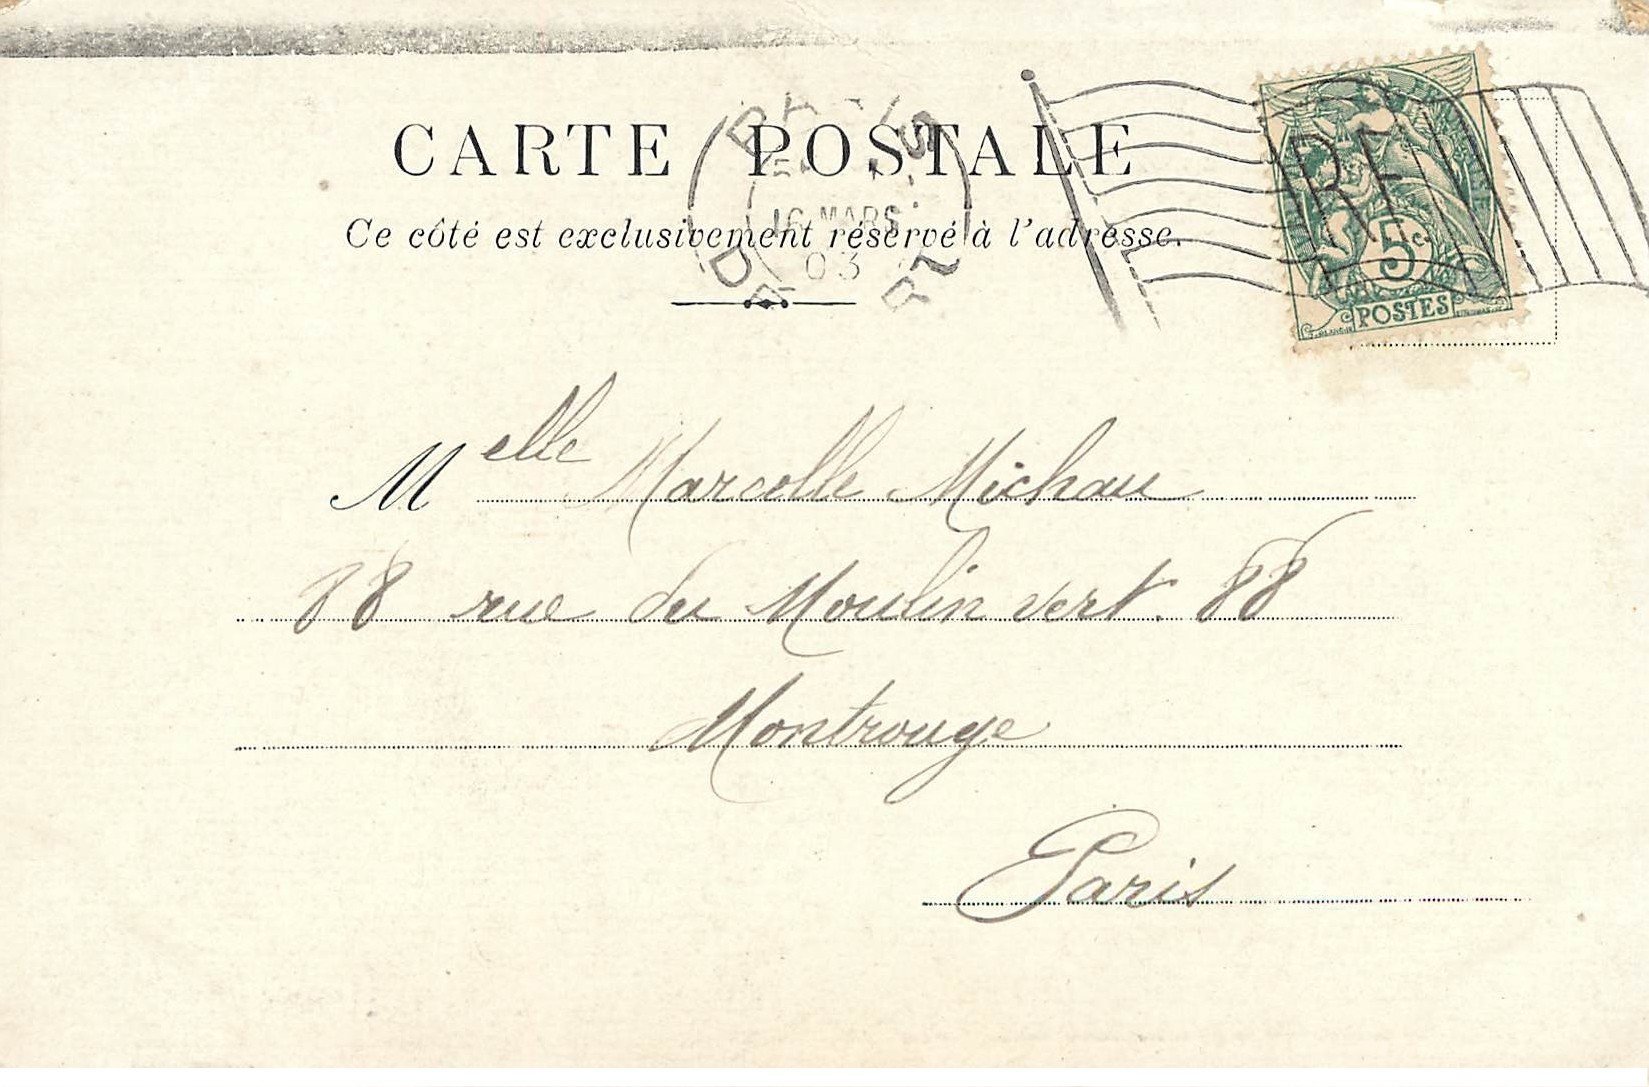 CARTE POSTALE
Ce côté est exclusivement réservé à l'adresse.
PARIS
16 MARS
03
DEP
RF
5 c.
POSTES
Melle Marcelle Michau
88 rue du Moulin vert. 88
Montrouge
Paris